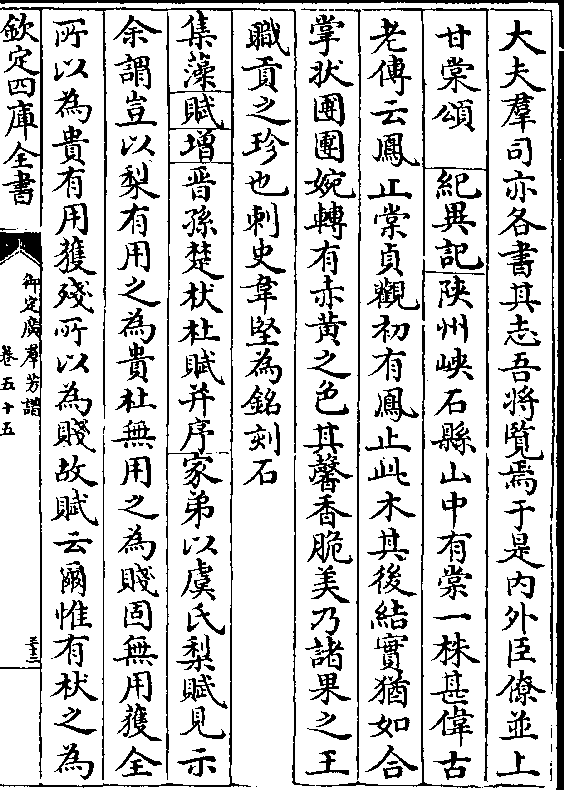 大夫羣司亦各書其志吾將覽焉于是内外臣僚並上
甘棠頌 紀異記 陜州峽石縣山中有棠一株甚偉古
老傳云鳳止棠貞觀初有鳳止此木其後結實猶如合
掌狀團團婉轉有赤黄之色其馨香脆美乃諸果之王
職貢之珍也刺史韋堅為銘刻石
集藻賦增晉孫楚杕杜賦并序家弟以虞氏梨賦見示
余謂豈以梨有用之為貴杜無用之為賤固無用獲全
所以為貴有用獲殘所以為賤故賦云爾惟有杕之為
欽定四庫全書
御定廣羣芳譜
卷五十五